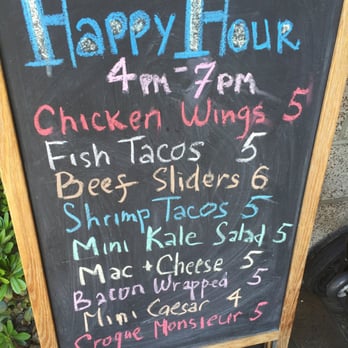 Happy Hour
4pm-7pm
Chicken Wings 5
Fish Tacos 5
Beef Sliders 6
Shrimp Tacos 5
Mini Kale Salad 5
Mac + Cheese 5
Bacon Wrapped 5
Mini Caesar 4
Croque Monsieur 5